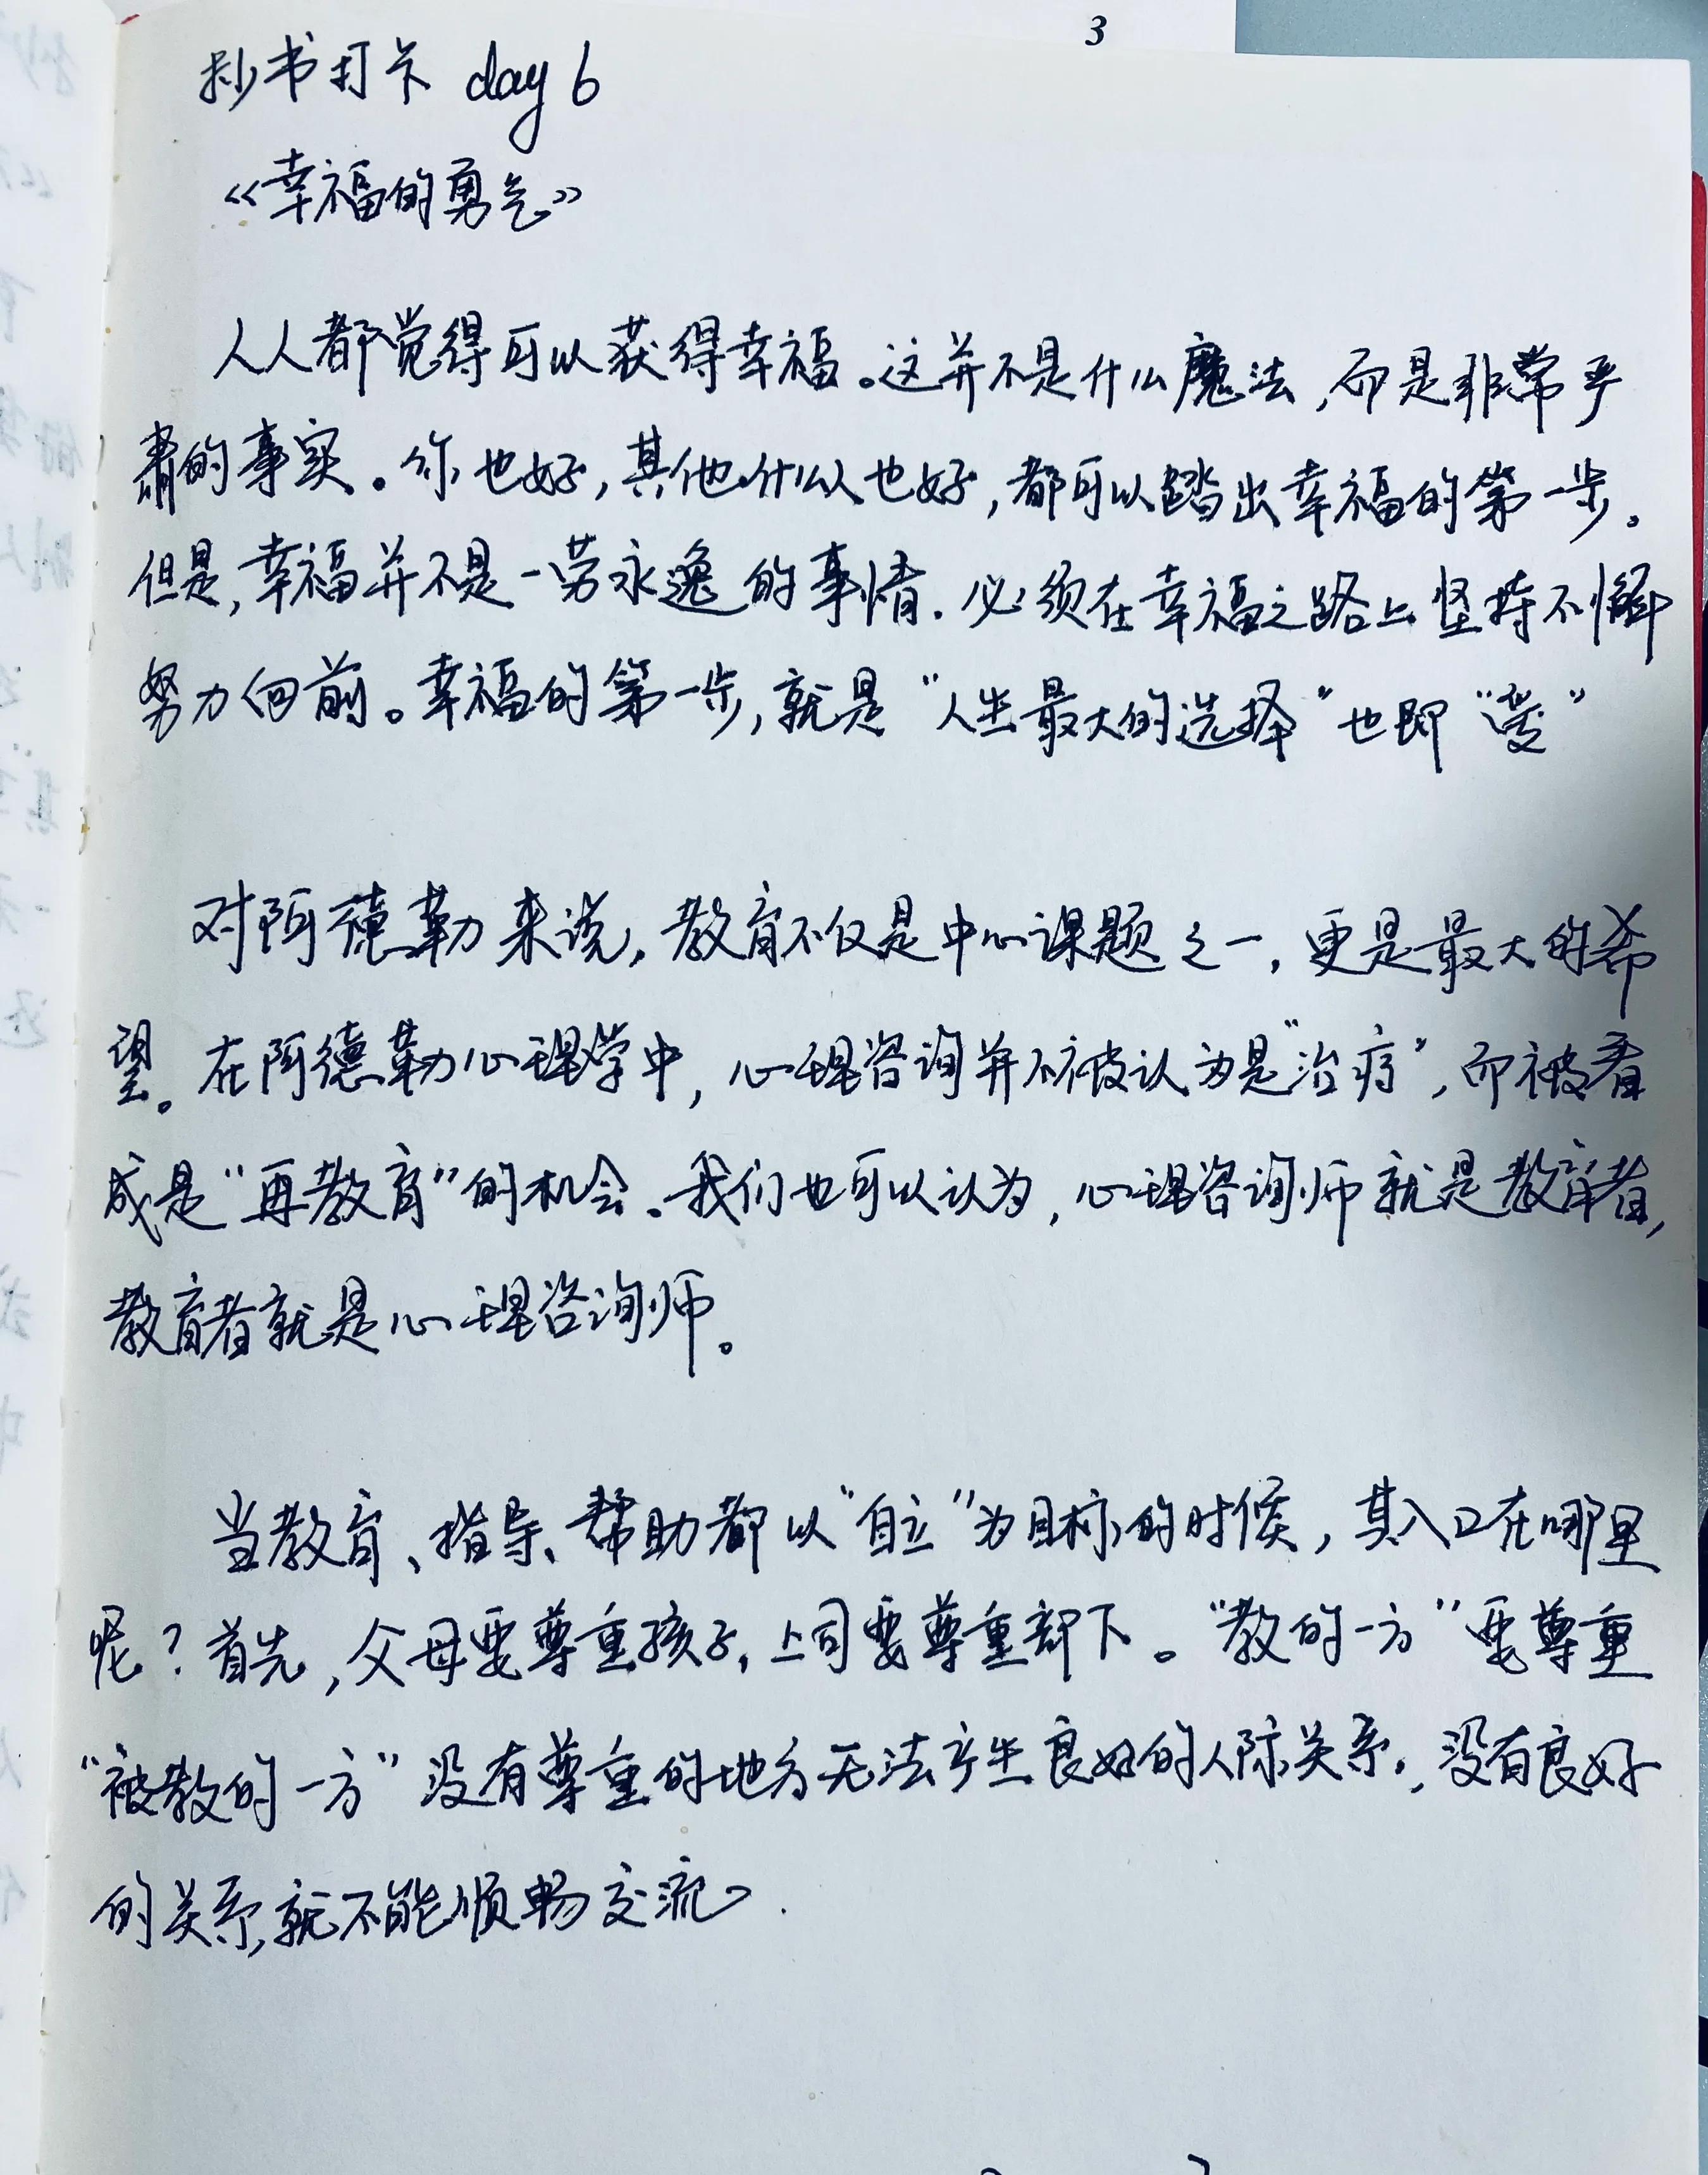 3
抄书打卡 day 6
《幸福的勇气》
人人都觉得可以获得幸福。这并不是什么魔法,而是非常严
肃的事实。你也好,其他什么人也好,都可以踏出幸福的第一步。
但是,幸福并不是一劳永逸的事情.必须在幸福之路上坚持不懈
努力向前。幸福的第一步,就是“人生最大的选择”也即“爱”
对阿德勒来说,教育不仅是中心课题之一,更是最大的希
望。在阿德勒心理学中,心理咨询并不被认为是“治疗”,而被看
成是“再教育”的机会。我们也可以认为,心理咨询师就是教育者,
教育者就是心理咨询师。
当教育、指导、帮助都以“自立”为目标的时候,其入口在哪里
呢?首先,父母要尊重孩子,上司要尊重部下。“教的一方”要尊重
“被教的一方”没有尊重的地方无法产生良好的人际关系,没有良好
的关系,就不能顺畅交流。